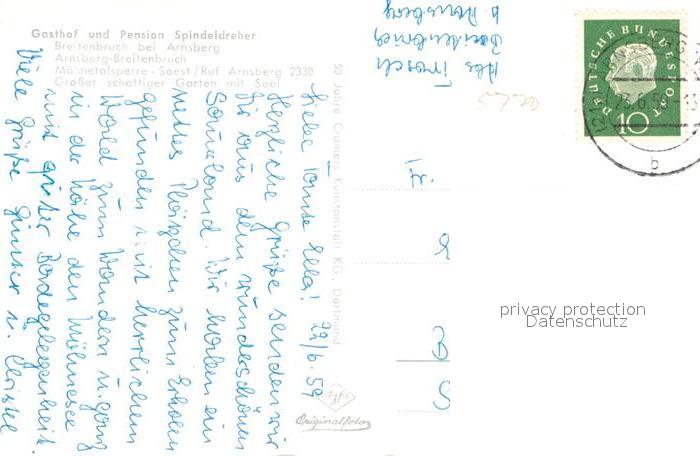 Gasthof und Pension Spindeldreher
Breitenbruch bei Arnsberg
Arnsberg-Breitenbruch
Möhnetalsperre - Soest / Ruf Arnsberg 2330
Großer schattiger Garten mit Saal
22/6. 59
Liebe Tante Lela!
Herzliche Grüße senden wir
Dir aus dem wunderschönen
Sauerland. Wir haben ein
nettes Plätzchen zum Erholen
gefunden mit herrlichem
Wald zum Wandern u. ganz
in der Nähe den Möhnesee
mit guter Badegelegenheit.
Viele Grüße Günter u. Christel
50 Jahre Cramers Kunstanstalt KG., Dortmund
Originalfoto
Abs. Frosch
Breitenbruch
b. Arnsberg
DEUTSCHE BUNDESPOST
10
23.6.59
b
privacy protection
Datenschutz